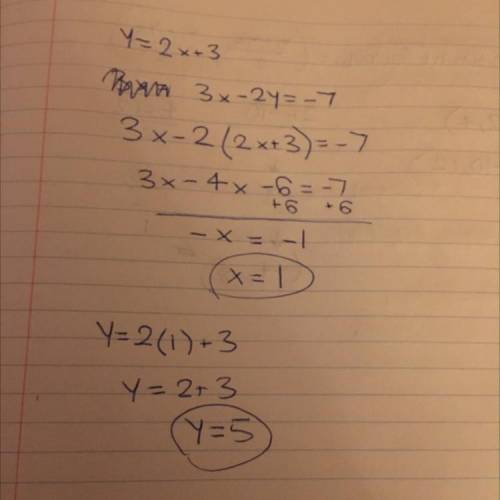 y=2x+3
3x-2y=-7
3x-2(2x+3)=-7
3x-4x-6=-7
+6 +6
-x=-1
x=1
y=2(1)+3
y=2+3
y=5